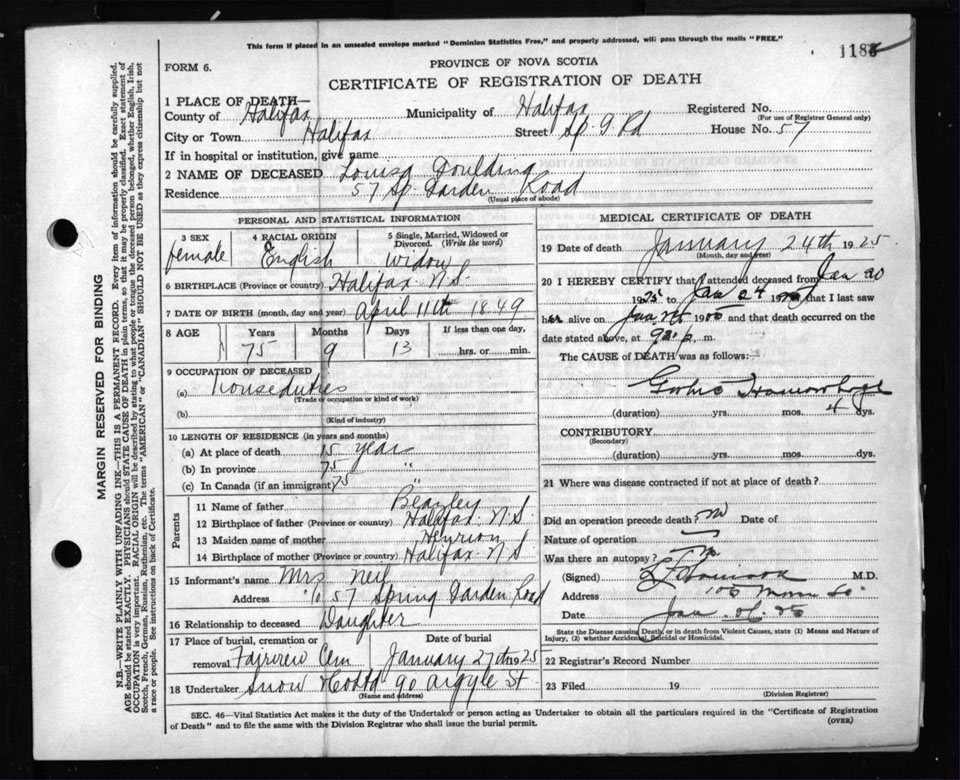 This form if placed in an unsealed envelope marked "Dominion Statistics Free," and properly addressed, will pass through the mails "FREE."
118
FORM 6.
PROVINCE OF NOVA SCOTIA
CERTIFICATE OF REGISTRATION OF DEATH
1 PLACE OF DEATH—
County of Halifax Municipality of Halifax Registered No.
(For use of Registrar General only)
City or Town Halifax Street Sp. G. Rd House No. 57
If in hospital or institution, give name
2 NAME OF DECEASED Louisa Goulding
Residence 57 Sp. Garden Road
(Usual place of abode)
PERSONAL AND STATISTICAL INFORMATION
3 SEX 4 RACIAL ORIGIN 5 Single, Married, Widowed or Divorced. (Write the word)
female English widow
6 BIRTHPLACE (Province or country) Halifax N.S.
7 DATE OF BIRTH (month, day and year) April 11th 1849
8 AGE Years Months Days If less than one day,
75 9 13 hrs. or min.
9 OCCUPATION OF DECEASED
(a) house duties
(Trade or occupation or kind of work)
(b)
(Kind of industry)
10 LENGTH OF RESIDENCE (in years and months)
(a) At place of death 15 years
(b) In province 75 "
(c) In Canada (if an immigrant) 75 "
Parents
11 Name of father Beazley
12 Birthplace of father (Province or country) Halifax N.S.
13 Maiden name of mother
14 Birthplace of mother (Province or country) Halifax N.S
15 Informant's name Mrs Neil
Address % 57 Spring Garden Road
16 Relationship to deceased Daughter
17 Place of burial, cremation or removal Date of burial
Fairview Cem January 27th 1925
18 Undertaker Snow & Co Ltd 90 Argyle St
(Name and address)
MEDICAL CERTIFICATE OF DEATH
19 Date of death January 24th 1925
(Month, day and year)
20 I HEREBY CERTIFY that I attended deceased from Jan 20
1925 to Jan 24 19 that I last saw
her alive on Jan 19 and that death occurred on
date stated above, at m.
The CAUSE of DEATH was as follows:—
(duration) yrs. mos. dys.
CONTRIBUTORY
(Secondary)
(duration) yrs. mos. dys.
21 Where was disease contracted if not at place of death?
Did an operation precede death? no Date of
Nature of operation
Was there an autopsy? no
(Signed) M.D.
Address
Date Jan
State the Disease causing Death, or in death from Violent Causes, state (1) Means and Nature of Injury, (2) whether Accidental, Suicidal or Homicidal.
22 Registrar's Record Number
23 Filed 19
(Division Registrar)
SEC. 46—Vital Statistics Act makes it the duty of the Undertaker or person acting as Undertaker to obtain all the particulars required in the "Certificate of Registration
of Death" and to file the same with the Division Registrar who shall issue the burial permit. (OVER)
MARGIN RESERVED FOR BINDING
N.B.—WRITE PLAINLY WITH UNFADING INK—THIS IS A PERMANENT RECORD. Every item of information should be carefully supplied.
AGE should be stated EXACTLY. PHYSICIANS should STATE CAUSE OF DEATH in plain terms, so that it may be properly classified. Exact statement of
OCCUPATION is very important. RACIAL ORIGIN will be described by stating to what people or tongue the deceased person belonged, whether English, Irish,
Scotch, French, German, Russian, Ruthenian, etc. The terms "AMERICAN" or "CANADIAN" SHOULD NOT BE USED as they express citizenship but not
a race or people. See instructions on back of Certificate.